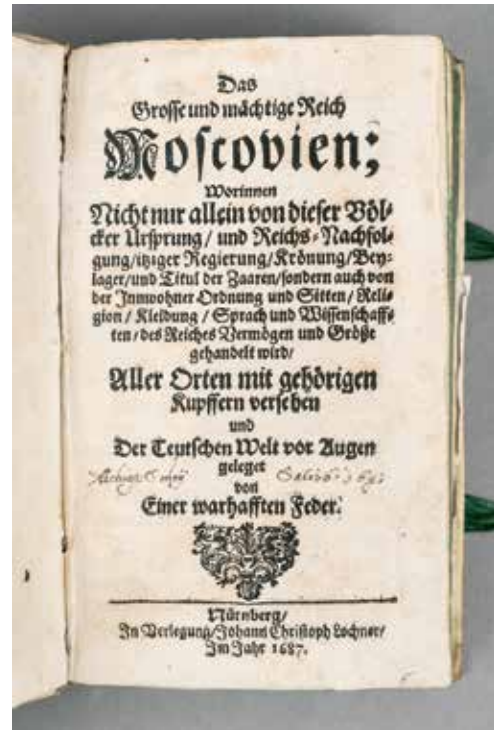 Das
Grosse und mächtige Reich
Moscovien;
Worinnen
Nicht nur allein von dieser Völ-
cker Ursprung / und Reichs-Nachfol-
gung/itziger Regierung/Krönung/Bey-
lager/und Titul der Zaaren/sondern auch von
der Innwohner Ordnung und Sitten / Reli-
gion / Kleidung / Sprach und Wissenschaff-
ten/des Reiches Vermögen und Größe
gehandelt wird/
Aller Orten mit gehörigen
Kupffern versehen
und
Der Teutschen Welt vor Augen
geleget
von
Einer warhafften Feder.
Nürnberg/
In Verlegung/Johann Christoph Lochner/
Im Jahr 1687.